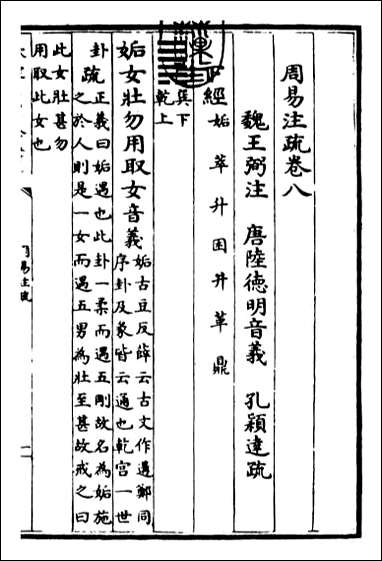 周易注疏卷八
魏王弼注　唐陸德明音義　孔穎達疏
經　姤　萃　升　困　井　革　鼎
巽下
乾上
姤女壯勿用取女音義姤古豆反薛云古文作遘鄭同
序卦及彖皆云遇也乾宮一世
卦疏正義曰姤遇也此卦一柔而遇五剛故名為姤施
之於人則是一女而遇五男為壯至甚故戒之曰
此女壯甚勿
用取此女也
周易注疏
一